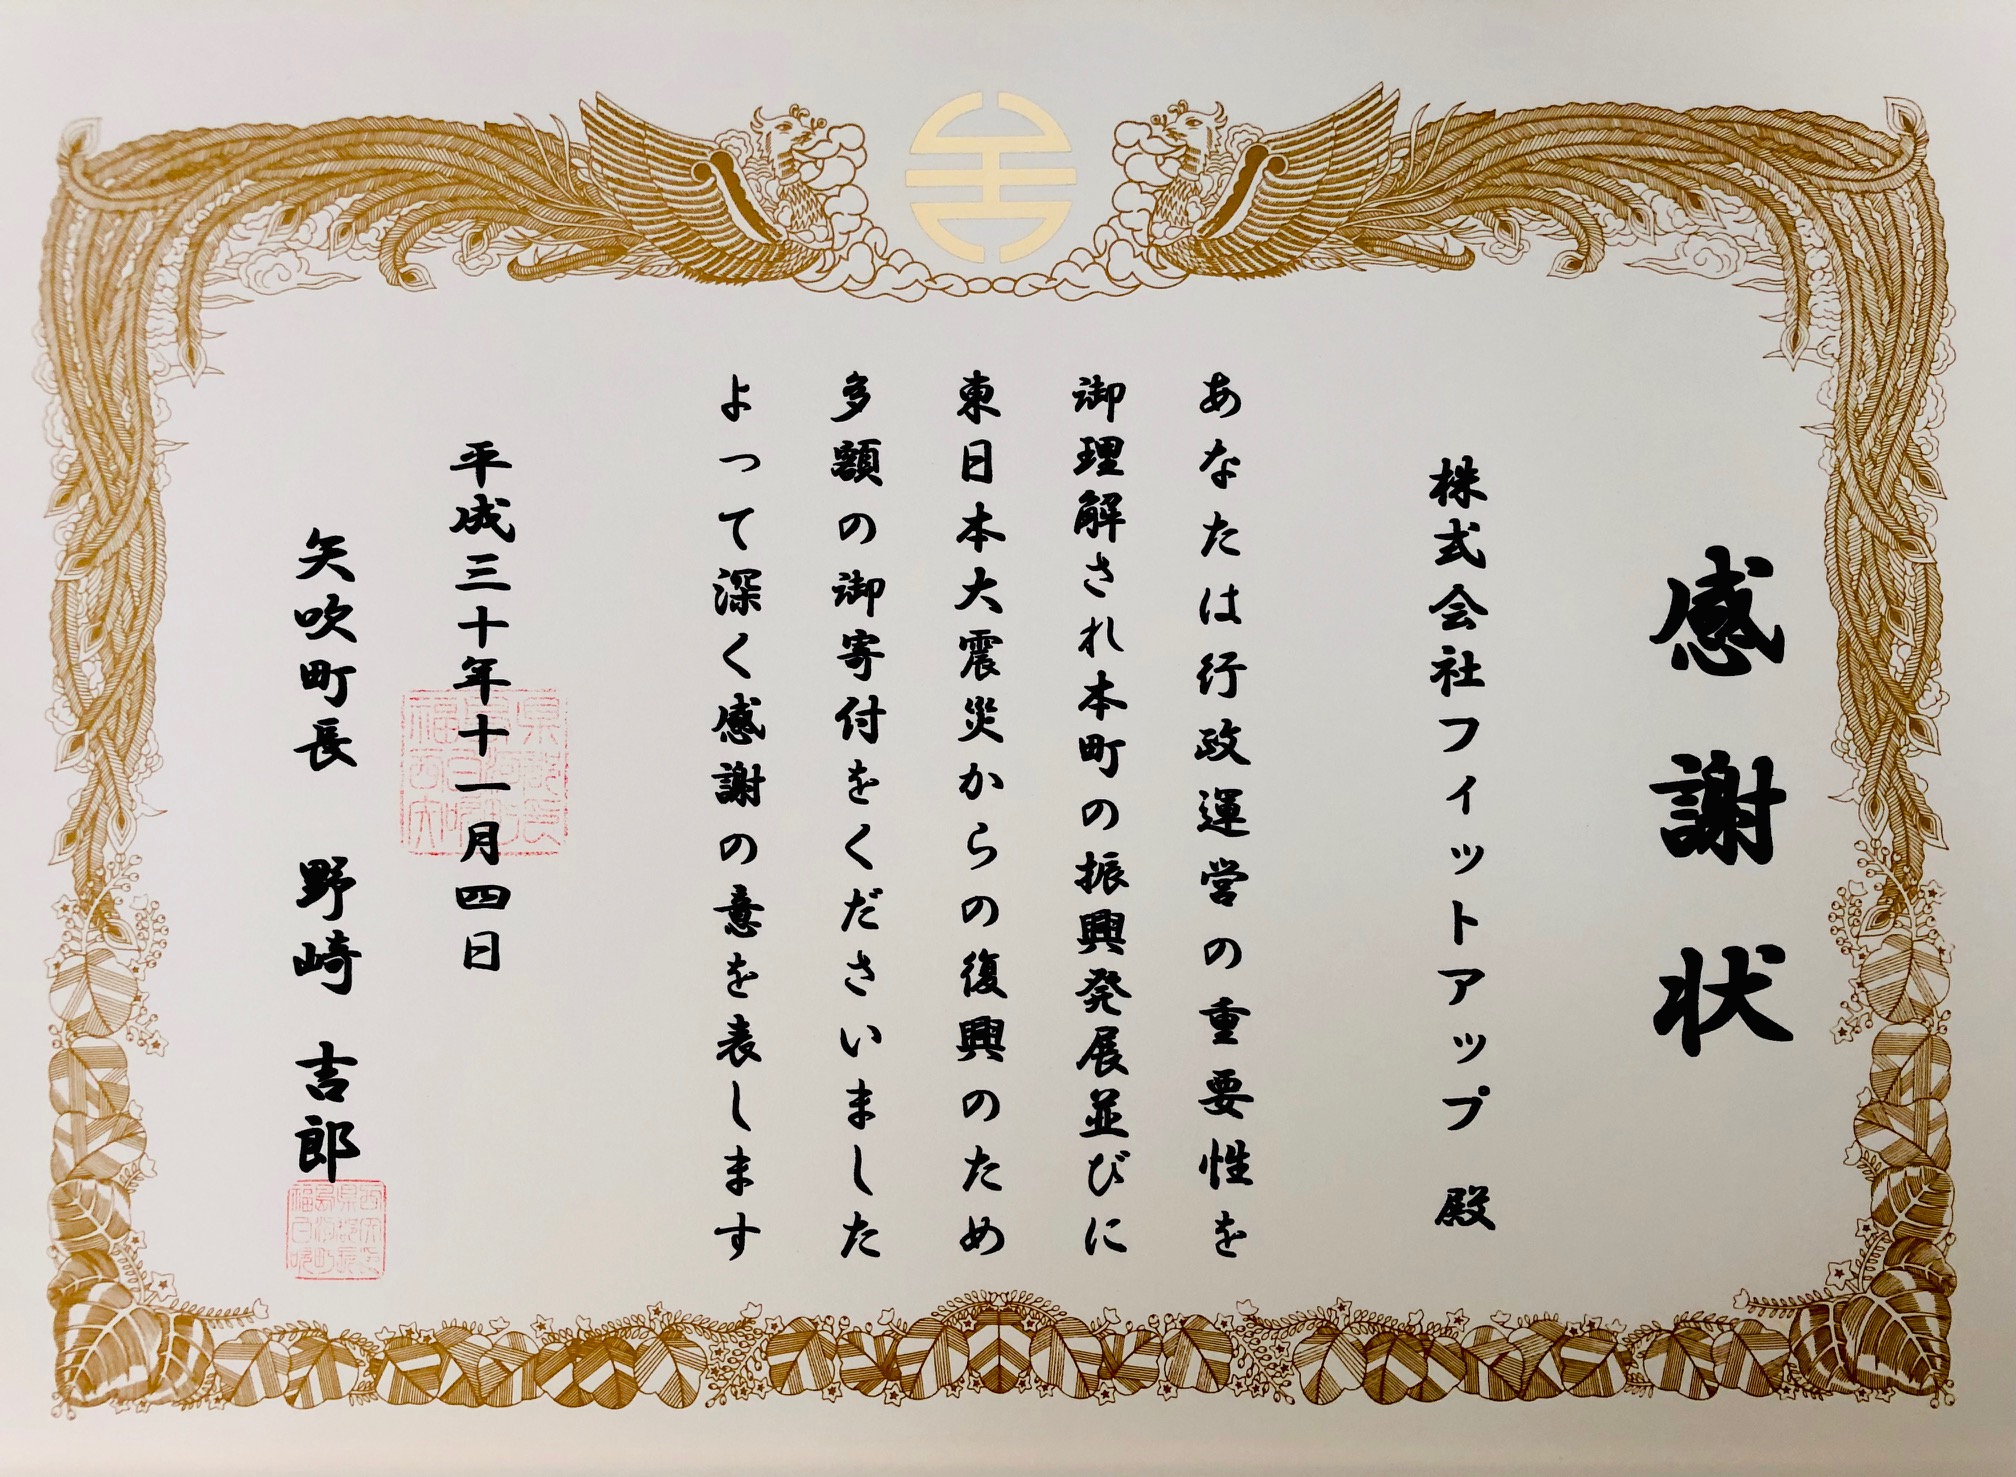 感謝状
株式会社フィットアップ 殿
あなたは行政運営の重要性を
御理解され本町の振興発展並びに
東日本大震災からの復興のため
多額の御寄付をくださいました
よって深く感謝の意を表します
平成三十年十一月四日
矢吹町長 野崎 吉郎